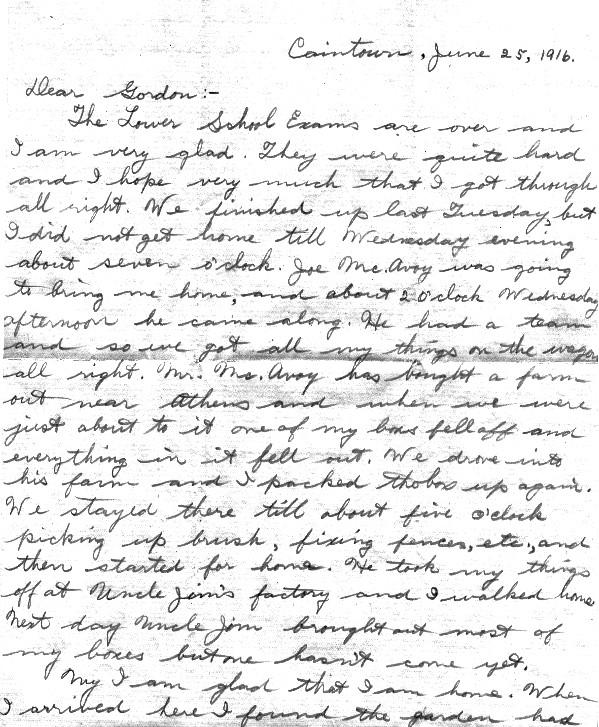 Caintown, June 25, 1916.
Dear Gordon:-
The Lower School Exams are over and
I am very glad. They were quite hard
and I hope very much that I got through
all right. We finished up last Tuesday, but
I did not get home till Wednesday evening
about seven o'clock. Joe Mc.Avoy was going
to bring me home, and about 2 o'clock Wednesday
afternoon he came along. He had a team
and so we got all my things on the wagon
all right. Mr. Mc.Avoy has bought a farm
out near Athens and when we were
just about to it one of my boxs fell off and
everything in it fell out. We drove into
his farm and I packed the box up again.
We stayed there till about five o'clock
picking up brush, fixing fences, etc., and
then started for home. He took my things
off at Uncle Jim's factory and I walked home
Next day Uncle Jim brought out most of
my boxes but one hasn't come yet.
My I am glad that I am home. When
I arrived here I found the garden had